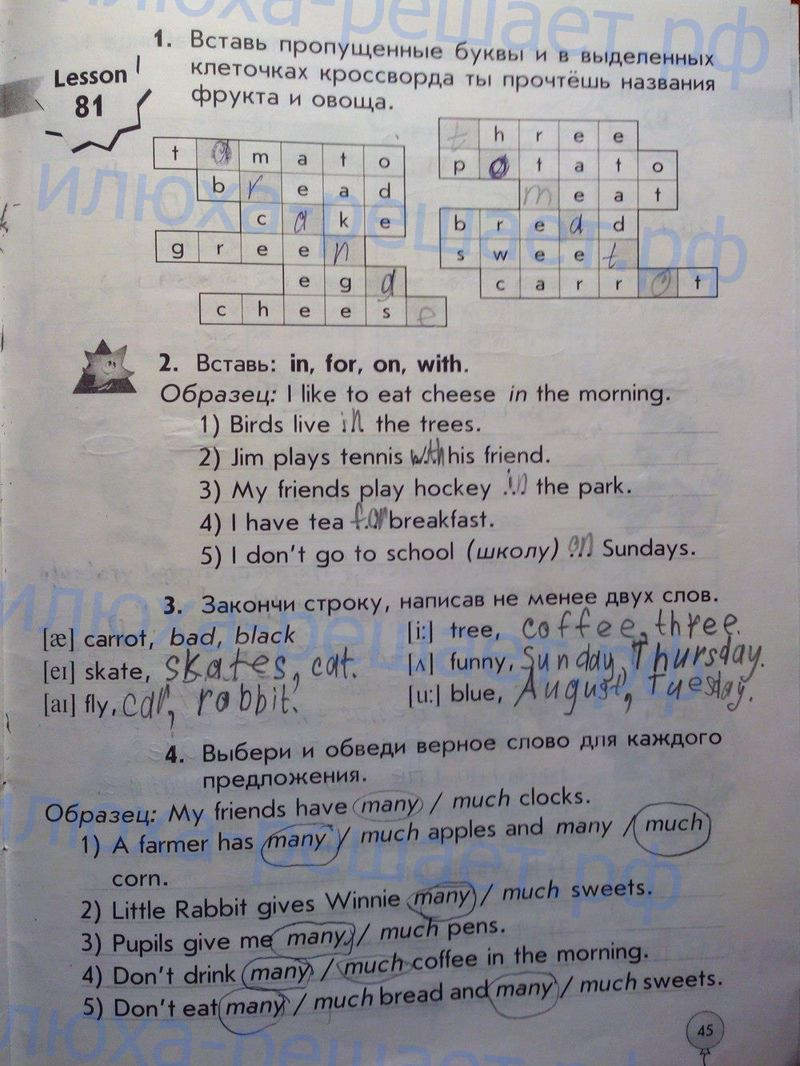 илюха-решает.рф
1. Вставь пропущенные буквы и в выделенных
Lesson клеточках кроссворда ты прочтёшь названия
81 фрукта и овоща.
t o m a t o
b r e a d
c a k e
g r e e n
e g g
c h e e s e
t h r e e
p o t a t o
m e a t
b r e a d
s w e e t
c a r r o t
илюха-решает.рф
2. Вставь: in, for, on, with.
Образец: I like to eat cheese in the morning.
1) Birds live in the trees.
2) Jim plays tennis with his friend.
3) My friends play hockey in the park.
4) I have tea for breakfast.
5) I don't go to school (школу) on Sundays.
илюха-решает.рф
3. Закончи строку, написав не менее двух слов.
[æ] carrot, bad, black
[eɪ] skate, skates, cat.
[aɪ] fly, car, rabbit.
[i:] tree, coffee, three.
[ʌ] funny, Sunday, Thursday.
[u:] blue, August, Tuesday.
4. Выбери и обведи верное слово для каждого
предложения.
Образец: My friends have many / much clocks.
1) A farmer has many / much apples and many / much
corn.
илюха-решает.рф
2) Little Rabbit gives Winnie many / much sweets.
3) Pupils give me many / much pens.
4) Don't drink many / much coffee in the morning.
5) Don't eat many / much bread and many / much sweets.
илюха-решает.рф
45